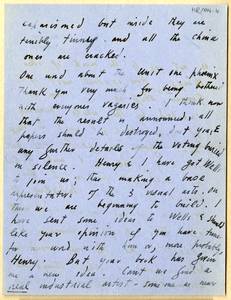 expressioned but inside they are
terribly tinny. and all the china
ones are cracked.
One word about the Unit One phoenix
Thank you very much for being bothered
with everyones vagaries. I think now
that the result announced & all
papers should be destroyed,
any further details of the voting buried
in silence. Henry & I have got Wells
to join us; thus making a base
representative of the 3 visual arts, on
this we are beginning to build. I
have sent some ideas to Wells & should
like your opinion if you have time
for a word with him or, more probably,
Henry. But your book has given
me a new idea. Can't we find a
real industrial artist - someone as near